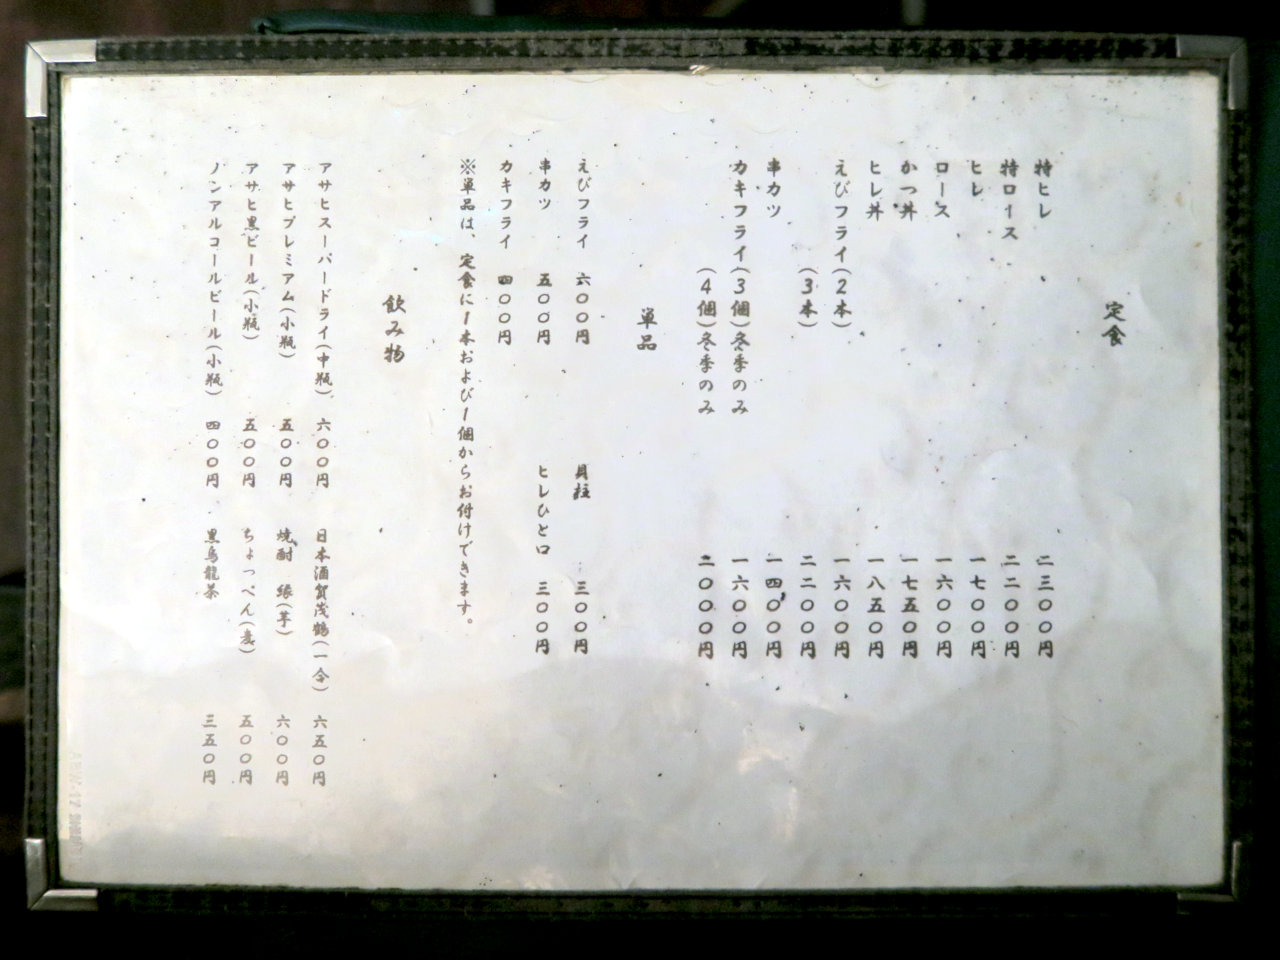 定食
特ヒレ 二三〇〇円
特ロイス 二二〇〇円
ヒレ 一七〇〇円
ロース 一六〇〇円
かつ丼 一七五〇円
ヒレ丼 一八五〇円
えびフライ(2本) 一六〇〇円
(3本) 二二〇〇円
串カツ 一四〇〇円
カキフライ(3個)冬季のみ 一六〇〇円
(4個)冬季のみ 二〇〇〇円
単品
えびフライ 六〇〇円 貝柱 三〇〇円
串カツ 五〇〇円 ヒレひと口 三〇〇円
カキフライ 四〇〇円
※単品は、定食に1本および1個からお付けできます。
飲み物
アサヒスーパードライ(中瓶) 六〇〇円 日本酒賀茂鶴(一合) 六五〇円
アサヒプレミアム(小瓶) 五〇〇円 焼酎 (芋) 六〇〇円
アサヒ黒ビール(小瓶) 五〇〇円 ちょっぺん(麦) 五〇〇円
ノンアルコールビール(小瓶) 四〇〇円 黒烏龍茶 三五〇円